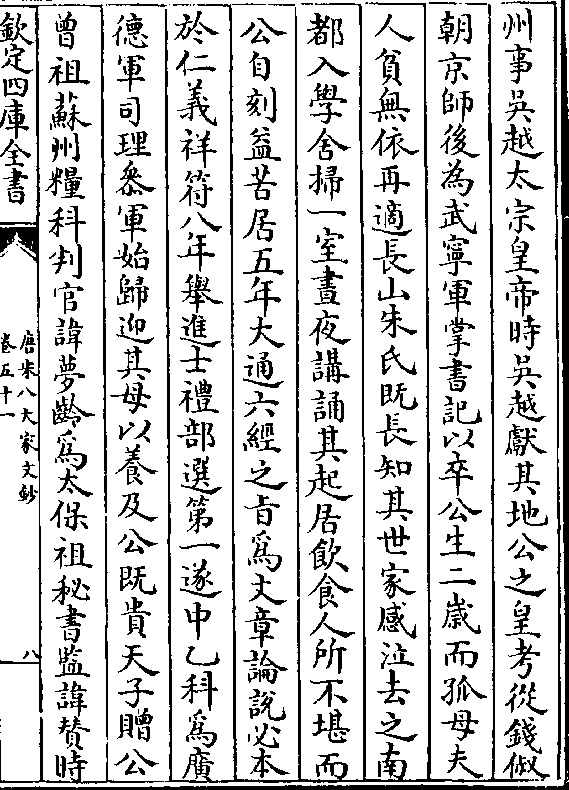 州事吳越太宗皇帝時吳越獻其地公之皇考從錢俶
朝京師後為武寧軍掌書記以卒公生二嵗而孤母夫
人貧無依再適長山朱氏既長知其世家感泣去之南
都入學舍掃一室晝夜講誦其起居飲食人所不堪而
公自刻益苦居五年大通六經之旨爲文章論說必本
於仁義祥符八年舉進士禮部選第一遂中乙科爲廣
德軍司理叅軍始歸迎其母以養及公既貴天子贈公
曾祖蘇州糧科判官諱夢齡爲太保祖秘書監諱賛時
欽定四庫全書
唐宋八大家文鈔
卷五十一
八